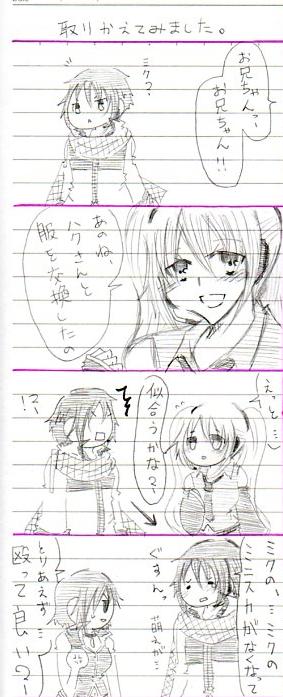 取りかえてみました。
お兄ちゃんっ、
お兄ちゃん!!
ミク?
あのね、
ハクさんと
服を交換したの
えっと…
似合うかな?
!?
ミクの、…ミクの
ミニスカがなくなって
ぐすんっ
萌えが…
とりあえず…
殴って良い!?